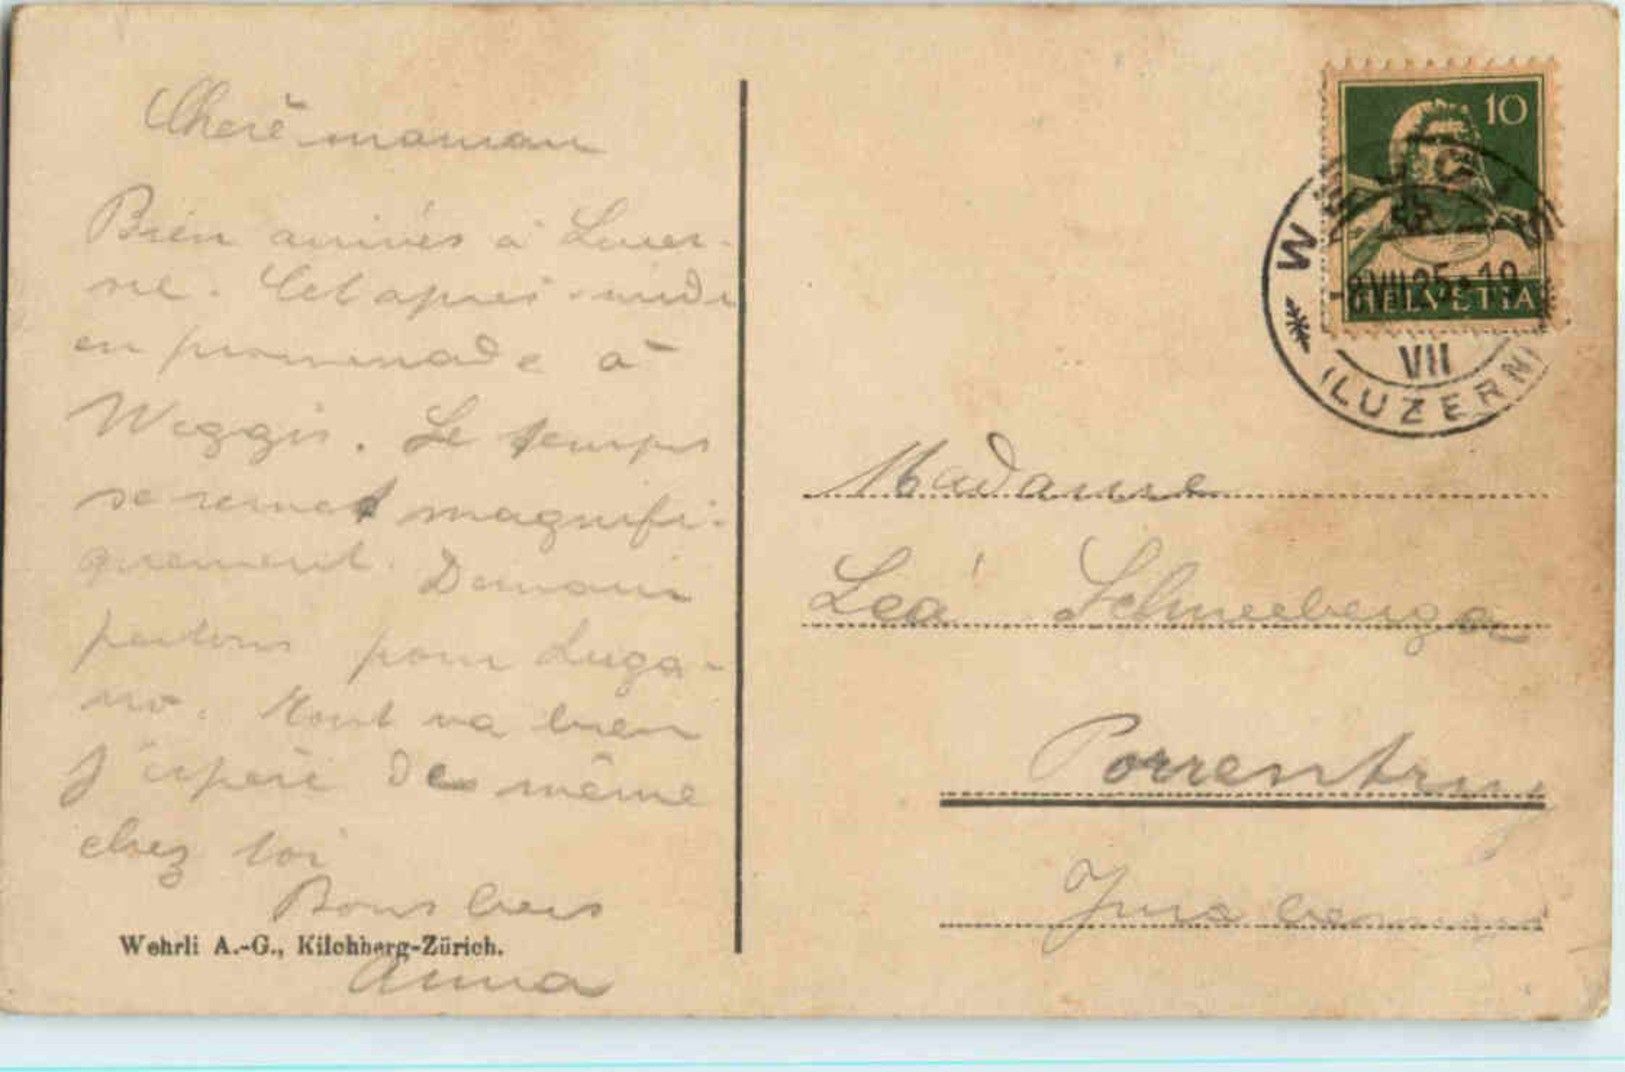 Chère maman
Bien arrivés à Lucer-
ne. Cet après-midi
en promenade à
Weggis. Le temps
se remet magnifi-
quement. Demain
partons pour Luga-
no. Tout va bien
J'espère de même
chez toi
Bons bers
Anna
Wehrli A.-G., Kilchberg-Zürich.
10
HELVETIA
WEGGIS
-8 VII 25 • 19
VII
(LUZERN)
Madame
Léa Schneeberger
Porrentruy
Jura bernois